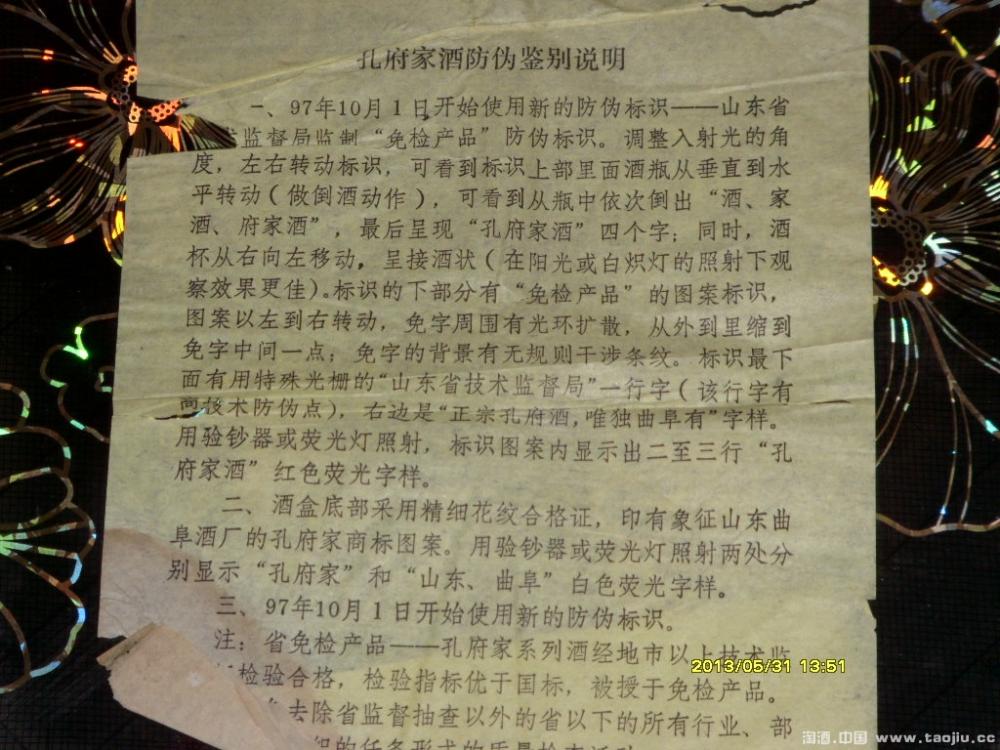 孔府家酒防伪鉴别说明
一、97年10月1日开始使用新的防伪标识——山东省
监督局监制“免检产品”防伪标识。调整入射光的角
度，左右转动标识，可看到标识上部里面酒瓶从垂直到水
平转动（做倒酒动作），可看到从瓶中依次倒出“酒、家
酒、府家酒”，最后呈现“孔府家酒”四个字；同时，酒
杯从右向左移动，呈接酒状（在阳光或白炽灯的照射下观
察效果更佳）。标识的下部分有“免检产品”的图案标识，
图案以左到右转动，免字周围有光环扩散，从外到里缩到
免字中间一点；免字的背景有无规则干涉条纹。标识最下
面有用特殊光栅的“山东省技术监督局”一行字（该行字有
技术防伪点），右边是“正宗孔府酒，唯独曲阜有”字样。
用验钞器或荧光灯照射，标识图案内显示出二至三行“孔
府家酒”红色荧光字样。
二、酒盒底部采用精细花纹合格证，印有象征山东曲
阜酒厂的孔府家商标图案。用验钞器或荧光灯照射两处分
别显示“孔府家”和“山东、曲阜”白色荧光字样。
三、97年10月1日开始使用新的防伪标识。
注：省免检产品——孔府家系列酒经地市以上技术监
检验合格，检验指标优于国标，被授于免检产品。
去除省监督抽查以外的省以下的所有行业、部
2013/05/31 13:51
淘酒.中国 www.taojiu.cc